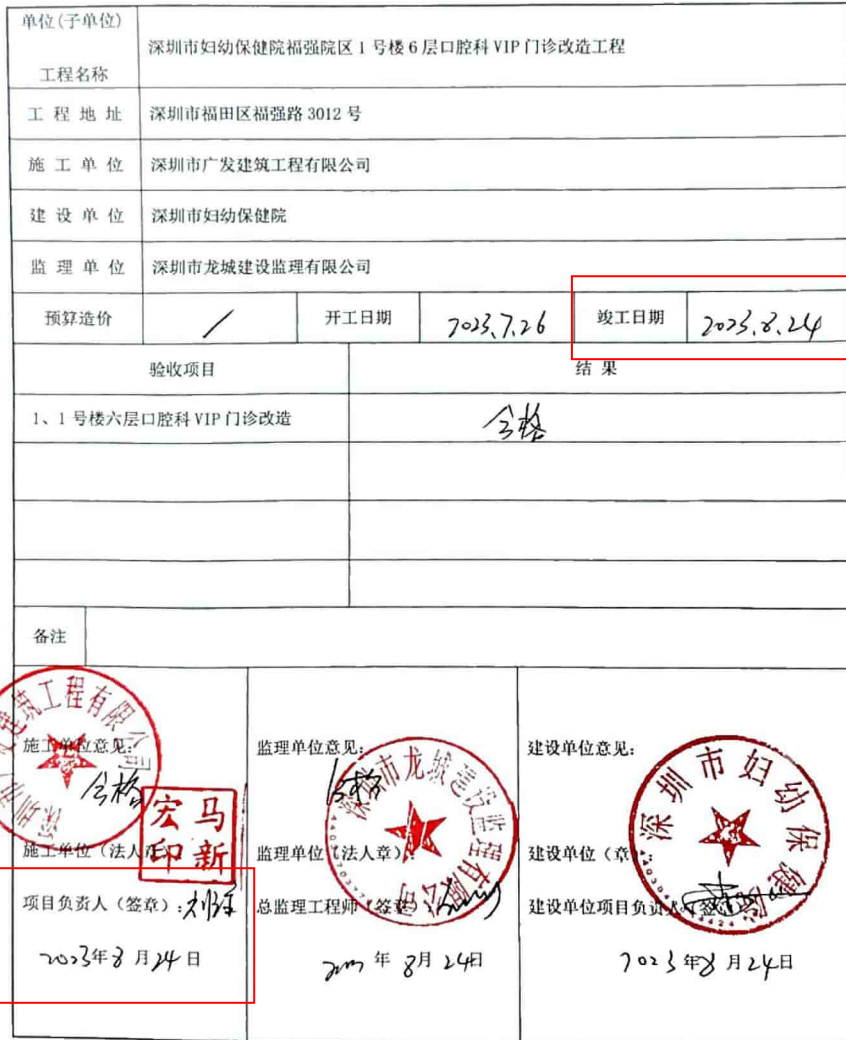 单位(子单位)
工程名称
深圳市妇幼保健院福强院区1号楼6层口腔科VIP门诊改造工程
工程地址 深圳市福田区福强路3012号
施工单位 深圳市广发建筑工程有限公司
建设单位 深圳市妇幼保健院
监理单位 深圳市龙城建设监理有限公司
预算造价 / 开工日期 2023.7.26 竣工日期 2023.8.24
验收项目 结果
1、1号楼六层口腔科VIP门诊改造 合格
备注
施工单位意见:
合格
施工单位(法人
项目负责人(签章):
2023年8月24日
建筑工程有限公司
马新
宏印
监理单位意见:
合格
监理单位(法人章):
总监理工程师(签章
年8月24日
深圳市龙城建设监理有限公司
建设单位意见:
建设单位(章
建设单位项目负责人(签
2023年8月24日
深圳市妇幼保健院